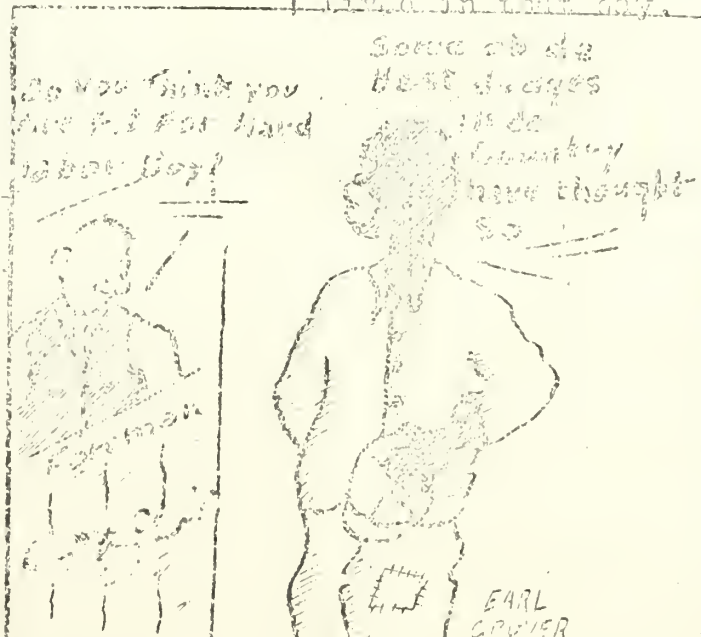 So You Think you
Are Fit For Hard
Labor Boy?
Some ob de
Best Judges
in de
Country
have thought
So
EARL